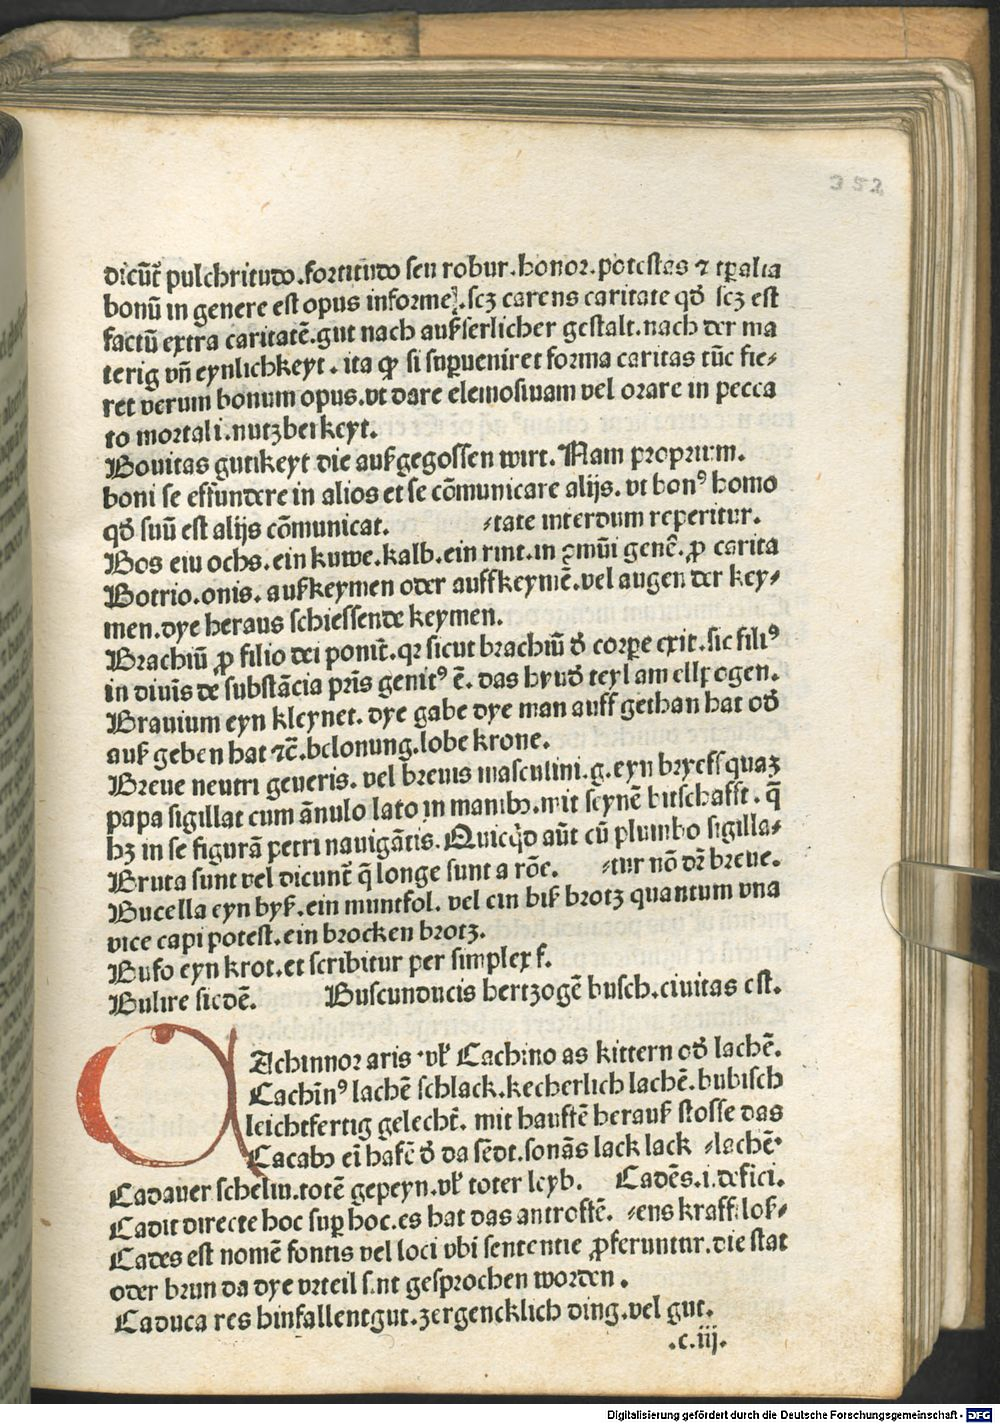 352
dicũt᷑ pulchritudo.fortitudo seu robur.honor.potestas ⁊ tꝑalia
bonũ in genere est opus informe.scꝫ carens caritate qđ scꝫ est
factũ extra caritatẽ.gut nach außserlicher gestalt.nach der ma
terig vñ eynlichkeyt.ita ꝙ si suꝑueniret forma caritas tũc fie⸗
ret verum bonum opus.vt dare elemosinam vel orare in pecca
to mortali.nutzberkeyt.
Bonitas gutikeyt die außgegossen wirt. Nam proprium.
boni se effundere in alios et se cõmunicare alijs. vt bonꝰ homo
qđ suũ est alijs cõmunicat. ⸗tate interdum reperitur.
Bos ein ochs.ein kuwe.kalb.ein rint.in ꝯmũi genẽ.ꝓ carita
Botrio.onis.außkeymen oder auffkeymẽ.vel augen der key⸗
men.dye heraus schiessende keymen.
Brachiũ ꝓ filio dei ponit᷑.qꝛ sicut brachiũ đ corꝑe exit.sic filiꝰ
in diuis̃ de substãcia pr̃is genitꝰ ẽ. das hynđ teyl am ellpogen.
Brauium eyn kleynet. dye gabe dye man auff gethan hat ođ
auß geben hat ⁊c̃.belonung.lobe krone.
Breue neutri generis. vel breuis masculini.g.eyn bryeff quaꝫ
papa sigillat cum ãnulo lato in manibꝫ.mit seynẽ bitschafft. q̃
hꝫ in se figurã petri nauigãtis. Quicq̇d aũt cũ plumbo sigilla⸗
Bruta sunt vel dicunt᷑ q̃ longe sunt a rõe. ⸗tur nõ dr̃ breue.
Bucella eyn byß.ein muntfol. vel ein biß brotz quantum vna
vice capi potest.ein brocken brotz.
Bufo eyn krot.et scribitur per simplex f.
Bulire siedẽ. Buscunducis hertzogẽ busch.ciuitas est.
C Achinnor aris vł Cachino as kittern ođ lachẽ.
Cachiñꝰ lachẽ schlack.kecherlich lachẽ.bubisch
leichtfertig gelecht᷑. mit hauftẽ herauß stosse das
Cacabꝫ eĩ hafẽ đ da sẽdt.sonãs lack lack ⸗lachẽ
Cadauer schelm.totẽ gepeyn.vł toter leyb. Cadẽs.i.defici.
Cadit directe hoc suꝑ hoc.es hat das antroffẽ. ⸗ens krafftloß⸗
Cades est nomẽ fontis vel loci vbi sententie ꝓferuntur.die stat
oder brun da dye vrteil sint gesprochen worden.
Caduca res hinfallentgut.zergencklich ding.vel gut.
.c.iij.
Digitalisierung gefördert durch die Deutsche Forschungsgemeinschaft - DFG